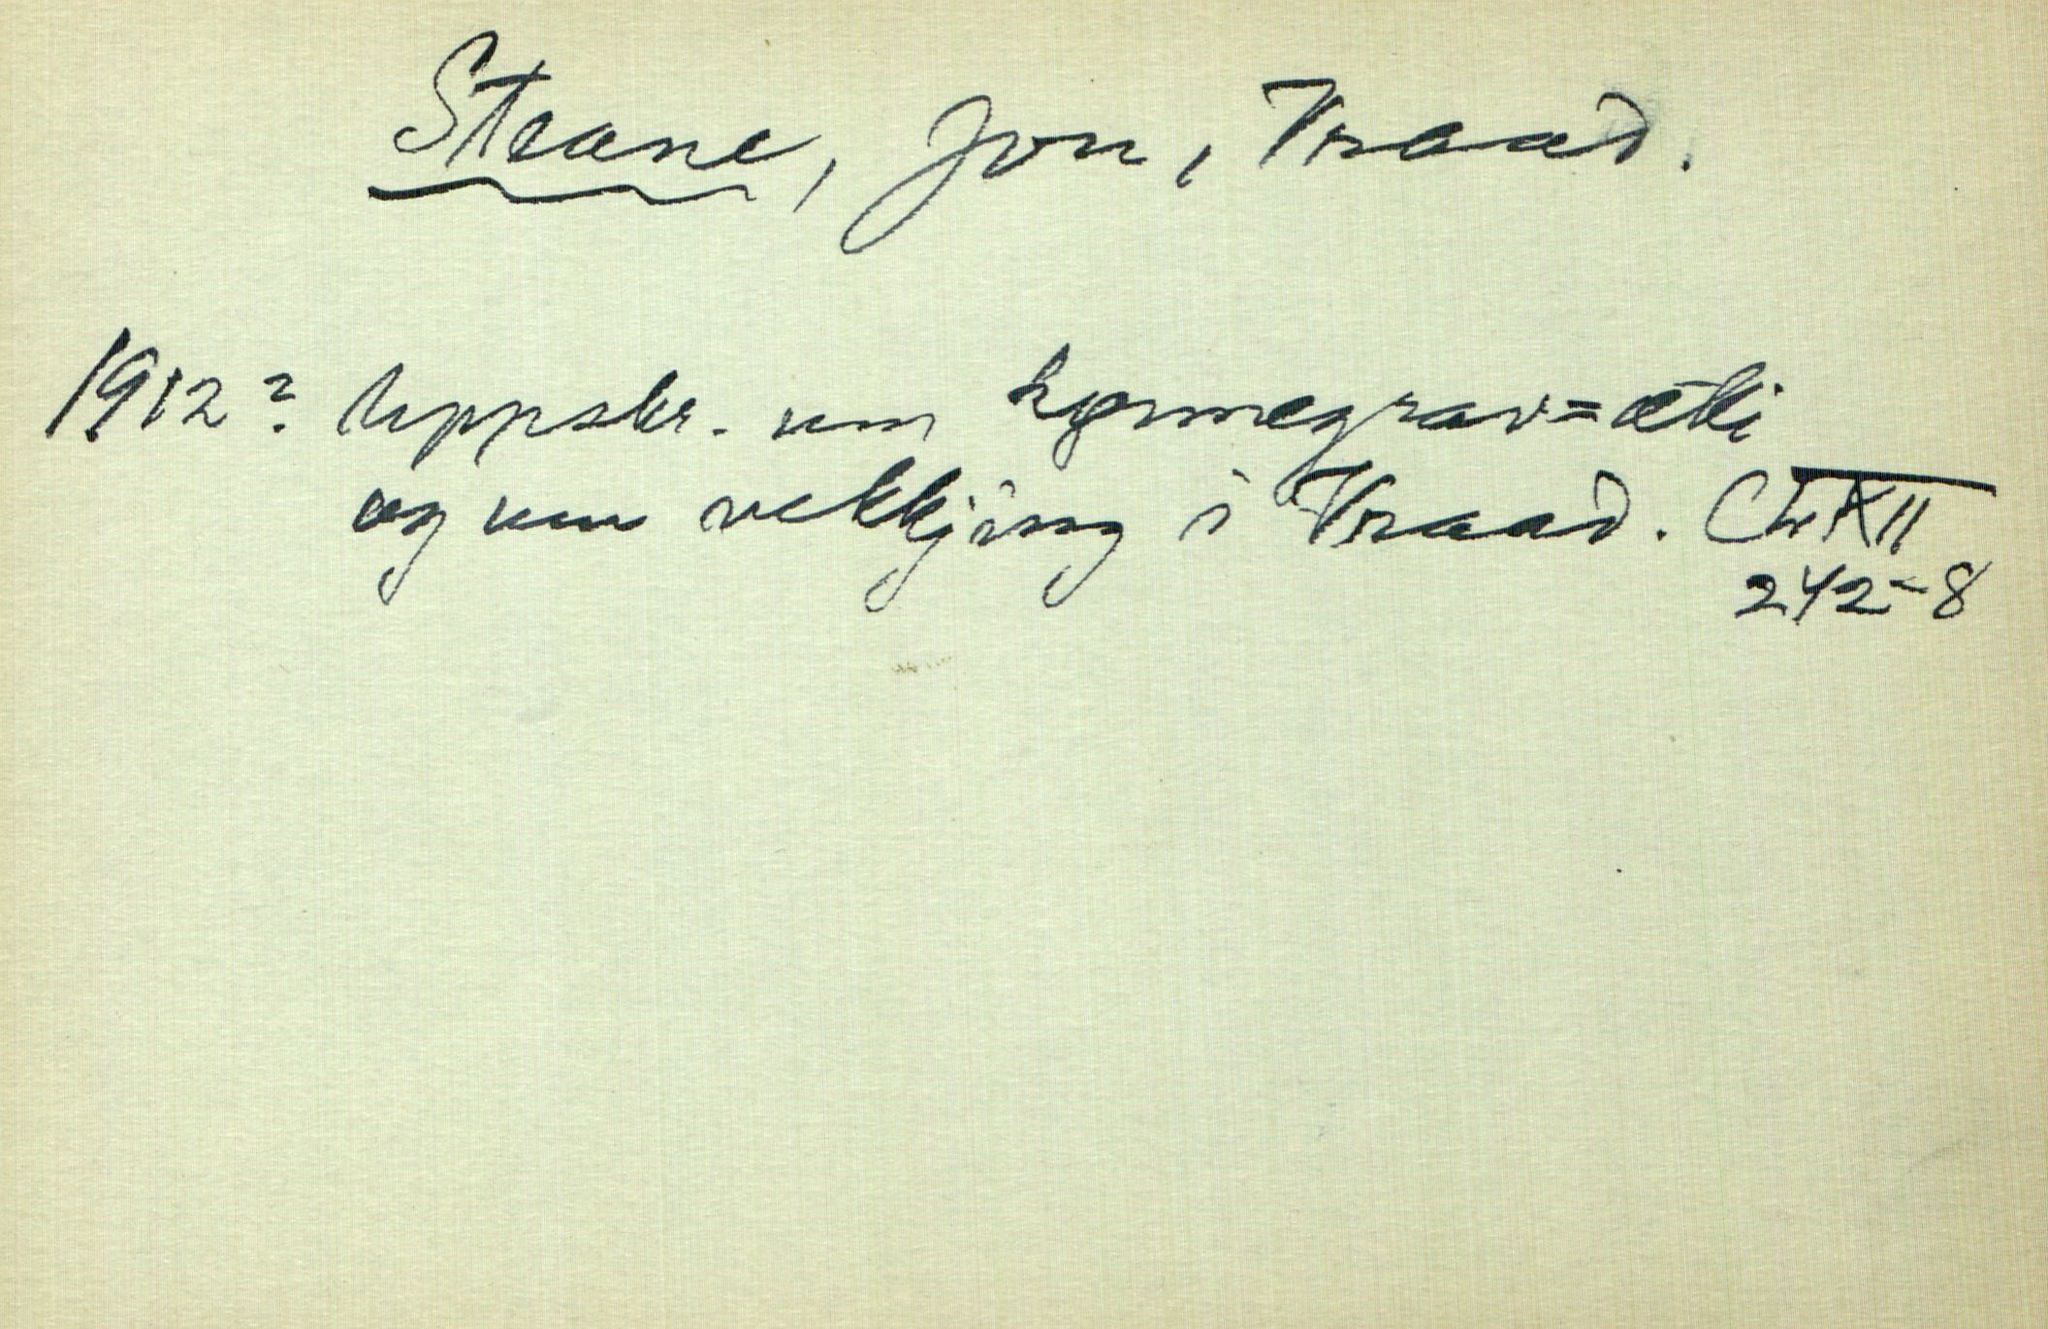 Strane, Jon, Kraad.
1912? Uppskr. um hommegrav=ætti
og um vekkjing i Kraad. CLXII
242-8